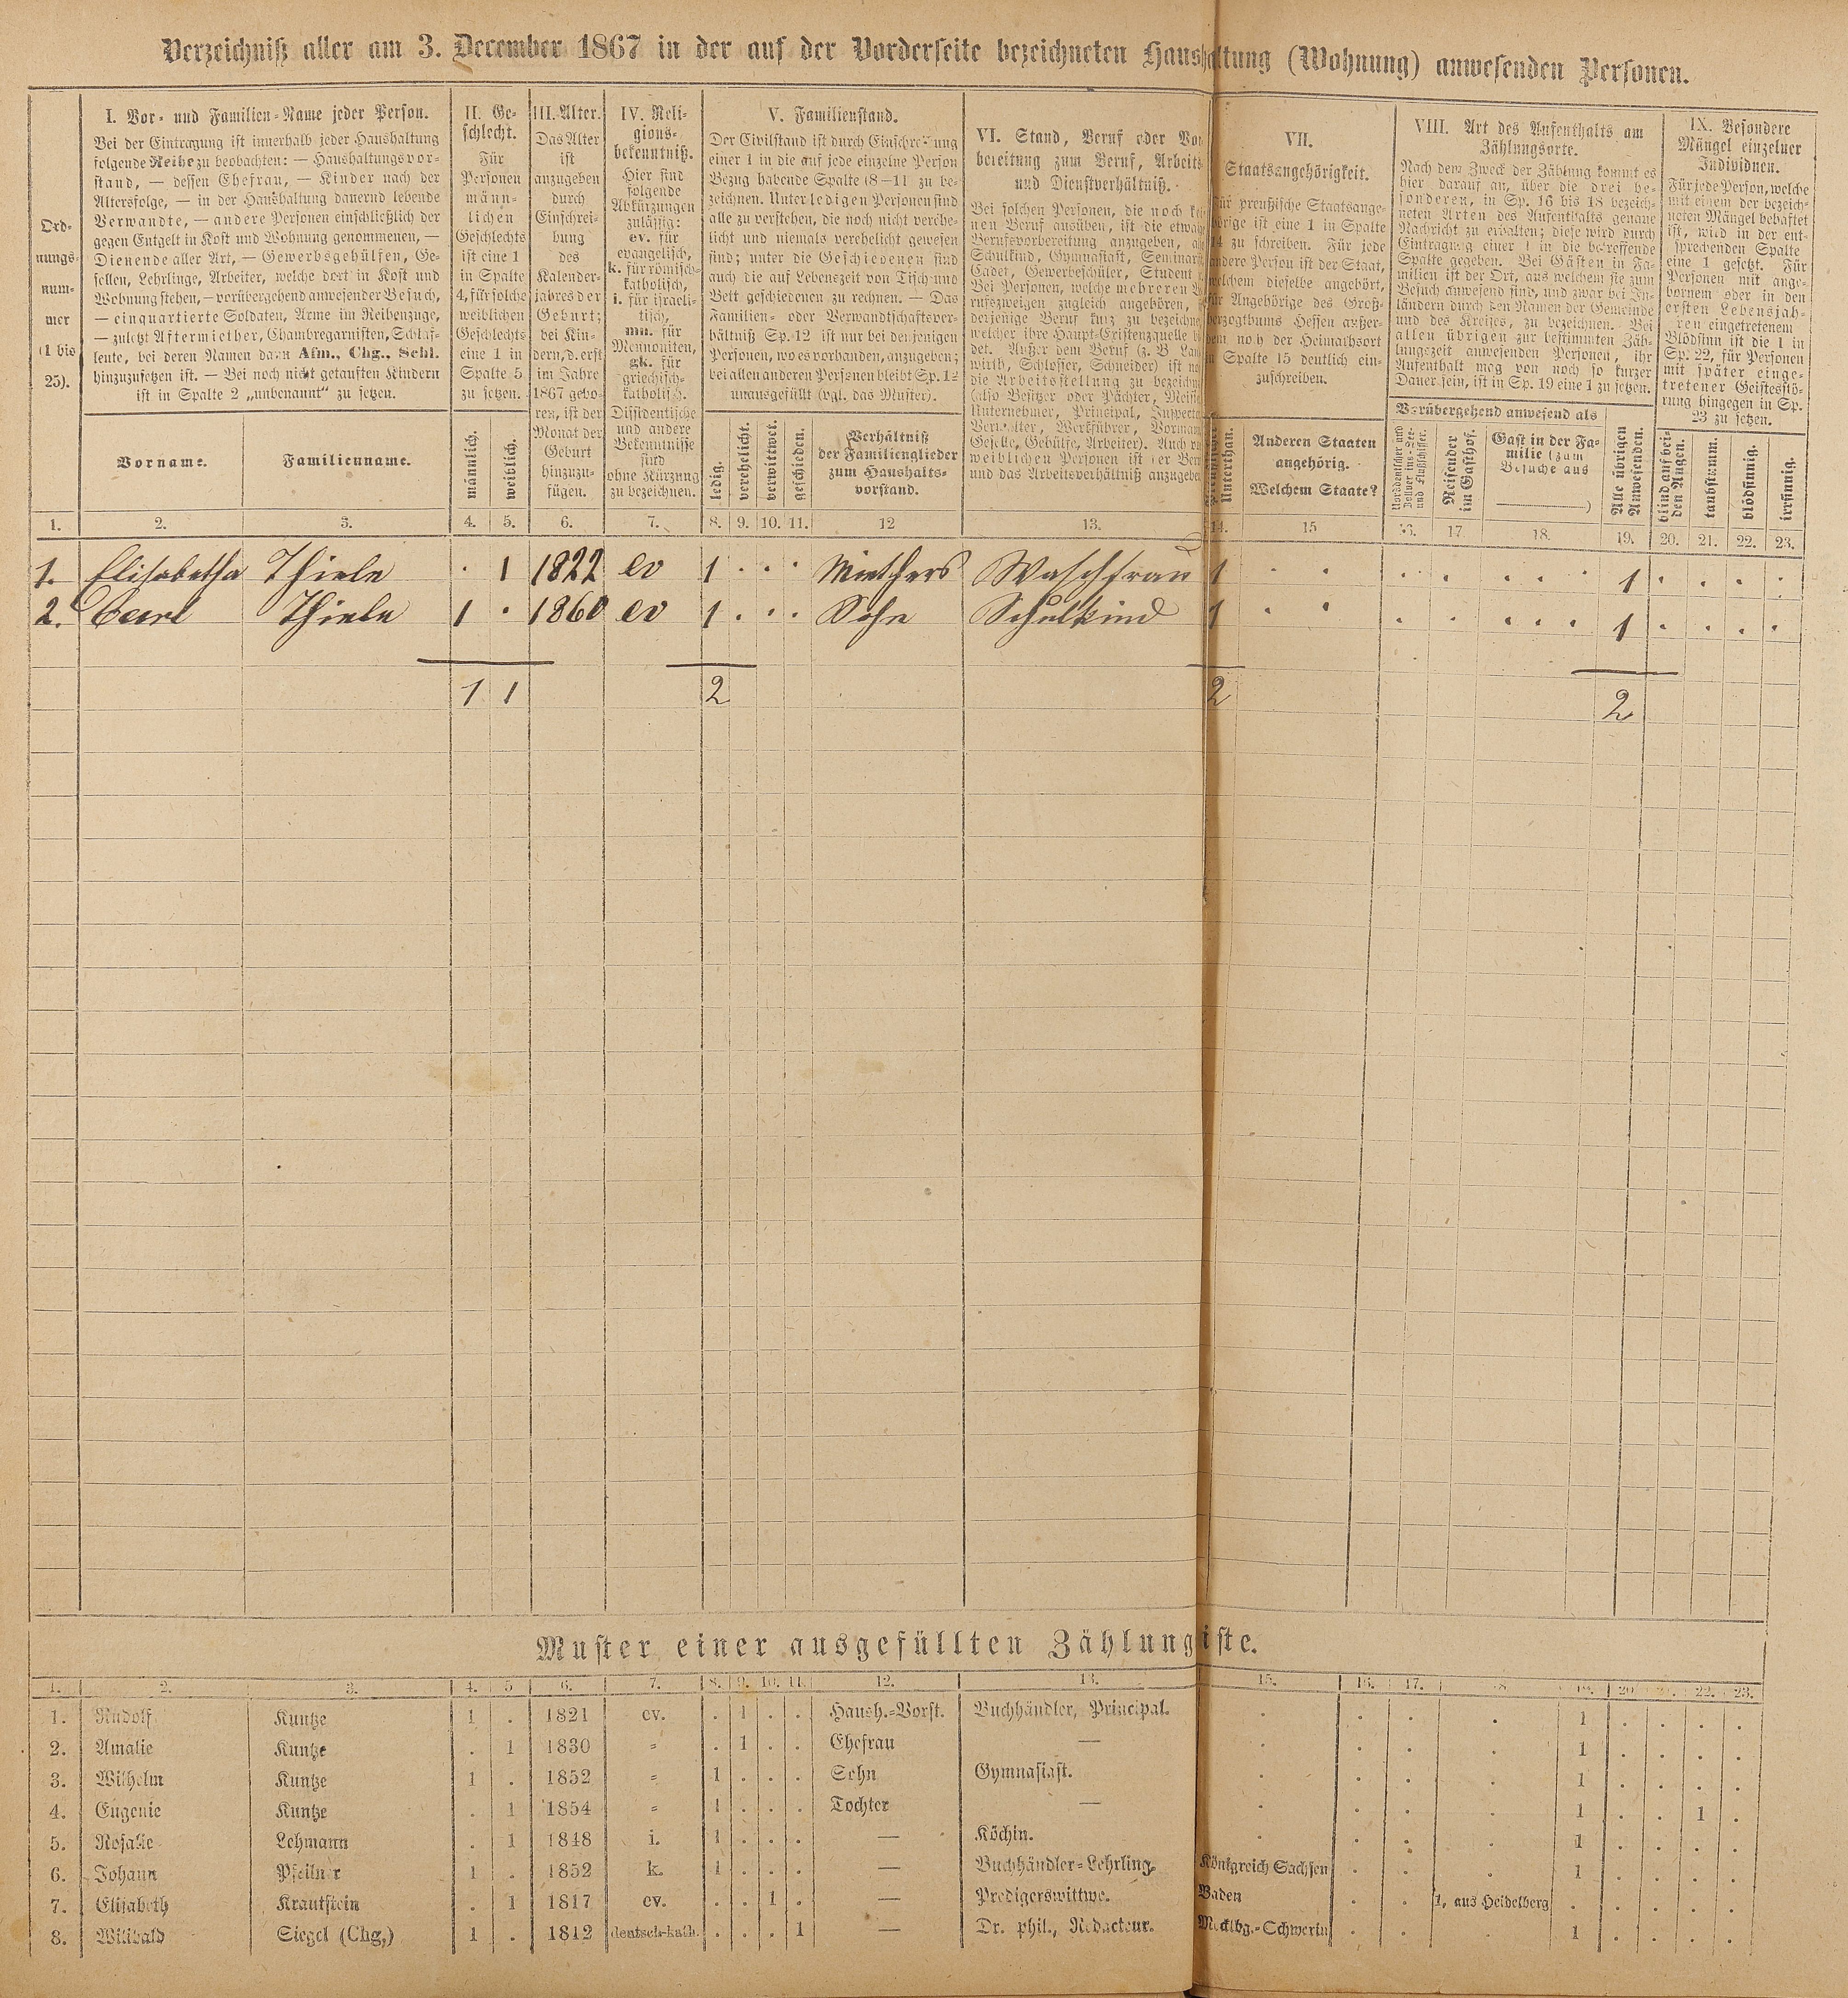 Verzeichniß aller am 3. December 1867 in der auf der Vorderseite bezeichneten Haushaltung (Wohnung) anwesenden Personen.
Ord-
nungs-
num-
mer
(1 bis
25).
I. Vor- und Familien-Name jeder Person.
Bei der Eintragung ist innerhalb jeder Haushaltung
folgende Reihe zu beobachten: — Haushaltungsvor-
stand, — dessen Ehefrau, — Kinder nach der
Altersfolge, — in der Haushaltung dauernd lebende
Verwandte, — andere Personen einschließlich der
gegen Entgelt in Kost und Wohnung genommenen, —
Dienende aller Art, — Gewerbsgehülfen, Ge-
sellen, Lehrlinge, Arbeiter, welche dort in Kost und
Wohnung stehen, — vorübergehend anwesender Besuch,
— einquartierte Soldaten, Arme im Reihenzuge,
— zuletzt Aftermiether, Chambregarnisten, Schlaf-
leute, bei deren Namen dann Afm., Chg., Schl.
hinzuzusetzen ist. — Bei noch nicht getauften Kindern
ist in Spalte 2 „unbenannt“ zu setzen.
Vorname.
Familienname.
II. Ge-
schlecht.
Für
Personen
männ-
lichen
Geschlechts
ist eine 1
in Spalte
4, für solche
weiblichen
Geschlechts
eine 1 in
Spalte 5
zu setzen.
männlich.
weiblich.
III. Alter.
Das Alter
ist
anzugeben
durch
Einschrei-
bung
des
Kalender-
jahres der
Geburt;
bei Kin-
dern, d. erst
im Jahre
1867 gebo-
ren, ist der
Monat der
Geburt
hinzuzu-
fügen.
IV. Reli-
gions-
bekenntniß.
Hier sind
folgende
Abkürzungen
zulässig:
ev. für
evangelisch,
k. für römisch-
katholisch,
i. für israeli-
tisch,
mn. für
Mennoniten,
gk. für
griechisch-
katholisch.
Dissidentische
und andere
Bekenntnisse
sind
ohne Kürzung
zu bezeichnen.
V. Familienstand.
Der Civilstand ist durch Einschreibung
einer 1 in die auf jede einzelne Person
Bezug habende Spalte (8—11 zu be-
zeichnen. Unter ledigen Personen sind
alle zu verstehen, die noch nicht verehe-
licht und niemals verehelicht gewesen
sind; unter die Geschiedenen sind
auch die auf Lebenszeit von Tisch und
Bett geschiedenen zu rechnen. — Das
Familien- oder Verwandtschaftsver-
hältniß Sp. 12 ist nur bei denjenigen
Personen, wo es vorhanden, anzugeben;
bei allen anderen Personen bleibt Sp. 12
unausgefüllt (vgl. das Muster).
ledig.
verehelicht.
verwittwet.
geschieden.
Verhältniß
der Familienglieder
zum Haushalts-
vorstand.
VI. Stand, Beruf oder Vor
bereitung zum Beruf, Arbeits
und Dienstverhältniß.
Bei solchen Personen, die noch kei
nen Beruf ausüben, ist die etwaige
Berufsvorbereitung anzugeben, als
Schulkind, Gymnasiast, Seminarist
Cadet, Gewerbeschüler, Student
Bei Personen, welche mehreren Be
rufszweigen zugleich angehören,
derjenige Beruf kurz zu bezeichnen
welcher ihre Haupt-Existenzquelle
det. Außer dem Beruf (z. B. Land
wirth, Schlosser, Schneider) ist
die Arbeitsstellung zu bezeichnen
(also Besitzer oder Pächter, Meister
Unternehmer, Principal, Inspector
Verwalter, Werkführer, Vormann
Geselle, Gehülfe, Arbeiter). Auch
weiblichen Personen ist der Beruf
und das Arbeitsverhältniß anzugeben
VII.
Staatsangehörigkeit.
Für preußische Staatsange-
hörige ist eine 1 in Spalte
14 zu schreiben. Für jede
andere Person ist der Staat,
welchem dieselbe angehört,
für Angehörige des Groß-
herzogthums Hessen außer-
dem noch der Heimathsort
in Spalte 15 deutlich ein-
zuschreiben.
Unterthan.
Anderen Staaten
angehörig.
Welchem Staate?
VIII. Art des Aufenthalts am
Zählungsorte.
Nach dem Zweck der Zählung kommt es
hier darauf an, über die drei be-
sonderen, in Sp. 16 bis 18 bezeich-
neten Arten des Aufenthalts genaue
Nachricht zu erhalten; diese wird durch
Eintragung einer 1 in die betreffende
Spalte gegeben. Bei Gästen in Fa-
milien ist der Ort, aus welchem sie zum
Besuch anwesend sind, und zwar bei In-
ländern durch den Namen der Gemeinde
und des Kreises, zu bezeichnen. Bei
allen übrigen zur bestimmten Zäh-
lungszeit anwesenden Personen, ihr
Aufenthalt mag von noch so kurzer
Dauer sein, ist in Sp. 19 eine 1 zu setzen.
Vorübergehend anwesend als
Norddeutscher und
Zollver.ins-See-
und Flußschiffer.
Reisender
im Gasthof.
Gast in der Fa-
milie (zum
Besuche aus
)
Alle übrigen
Anwesenden.
IX. Besondere
Mängel einzelner
Individuen.
Für jede Person, welche
mit einem der bezeich-
neten Mängel behaftet
ist, wird in der ent-
sprechenden Spalte
eine 1 gesetzt. Für
Personen mit ange-
bornem oder in den
ersten Lebensjah-
ren eingetretenem
Blödsinn ist die 1 in
Sp. 22, für Personen
mit später einge-
tretener Geistesstö-
rung hingegen in Sp.
23 zu setzen.
blind auf bei-
den Augen.
taubstumm.
blödsinnig.
irrsinnig.
1. 2. 3. 4. 5. 6. 7. 8. 9. 10. 11. 12 13. 14. 15 16. 17. 18. 19. 20. 21. 22. 23.
1. Elisabetha Thiele . 1 1822 ev 1 . . . Miethers Waschfrau 1 . . . . . . . . 1 . . . .
2. Carl Thiele 1 . 1860 ev 1 . . . Sohn Schulkind 1 . . . . . . . 1 . . . .
1 1 2 2 2
Muster einer ausgefüllten Zählungsliste.
1. 2. 3. 4. 5 6. 7. 8. 9. 10. 11. 12. 13. 15. 16. 17. 18 19. 20. 21. 22. 23.
1. Rudolf Kuntze 1 . 1821 ev. . 1 . . Haush.-Vorst. Buchhändler, Principal. . . . . 1 . . . .
2. Amalie Kuntze . 1 1830 = . 1 . . Ehefrau — . . . . 1 . . . .
3. Wilhelm Kuntze 1 . 1852 = 1 . . . Sohn Gymnasiast. . . . . 1 . . . .
4. Eugenie Kuntze . 1 1854 = 1 . . . Tochter — . . . . 1 . . 1 .
5. Rosalie Lehmann . 1 1848 i. 1 . . . — Köchin. . . . . 1 . . . .
6. Johann Pfeilner 1 . 1852 k. 1 . . . — Buchhändler-Lehrling. Königreich Sachsen . . . 1 . . . .
7. Elisabeth Krautstein . 1 1817 ev. . . 1 . — Predigerswittwe. Baden . . 1, aus Heidelberg . . . . .
8. Willibald Siegel (Chg,) 1 . 1812 deutsch-kath. . . . 1 — Dr. phil., Redacteur. Mecklbg.-Schwerin . . . 1 . . . .